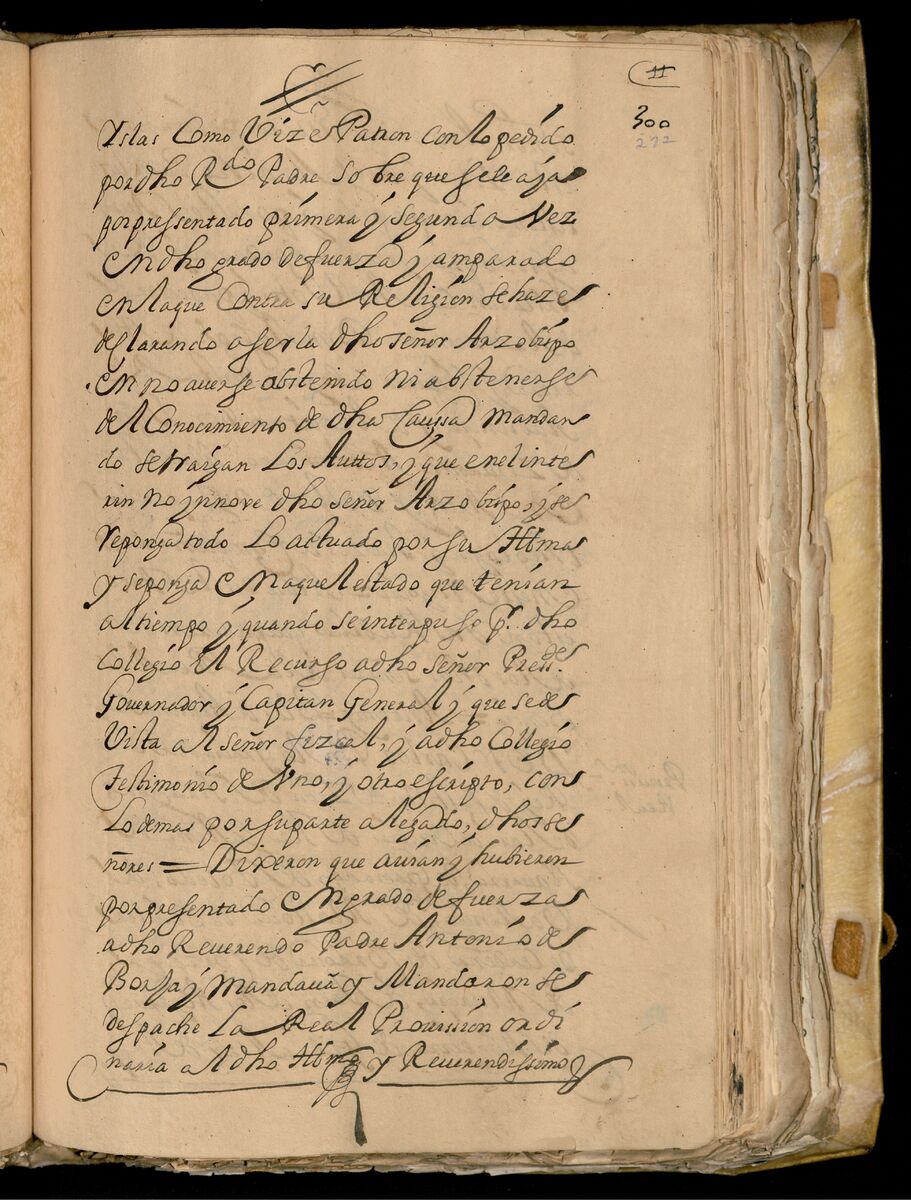 11
300
272
Yslas Como Vize Patron con lo pedido
por dho Rdo Padre sobre que se le aja
por pressentado primera y segunda Vez
en dho grado de fuerza y amparado
en la que Contra su Religion se haze
declarando aserla dho señor Arzobispo
en no auerse abstenido ni abstenerse
del Conocimiento de dha Caussa mandan
do se traigan Los Auttos, y que en el inte
rin no ynnove dho señor Arzobispo, y se
reponga todo Lo actuado por su Illma
y se ponga en aquel estado que tenian
al tiempo y quando se interpuso pr. dho
Collegio el Recurso a dho señor Presdte.
Gouernador y Capitan General y que se de
Vista al señor fizcal, y a dho Collegio
Testimonio de Vno, y otro escripto, con
Lo demas por su parte alegado, dhos se
ñores = Dixeron que auian y hubieron
por presentado en grado de fuerza
a dho Reuerendo Padre Antonio de
Borja y Mandauã y Mandaron se
despache La Real Prouission ordi
naria al dho Illmo y Reuerendissimo